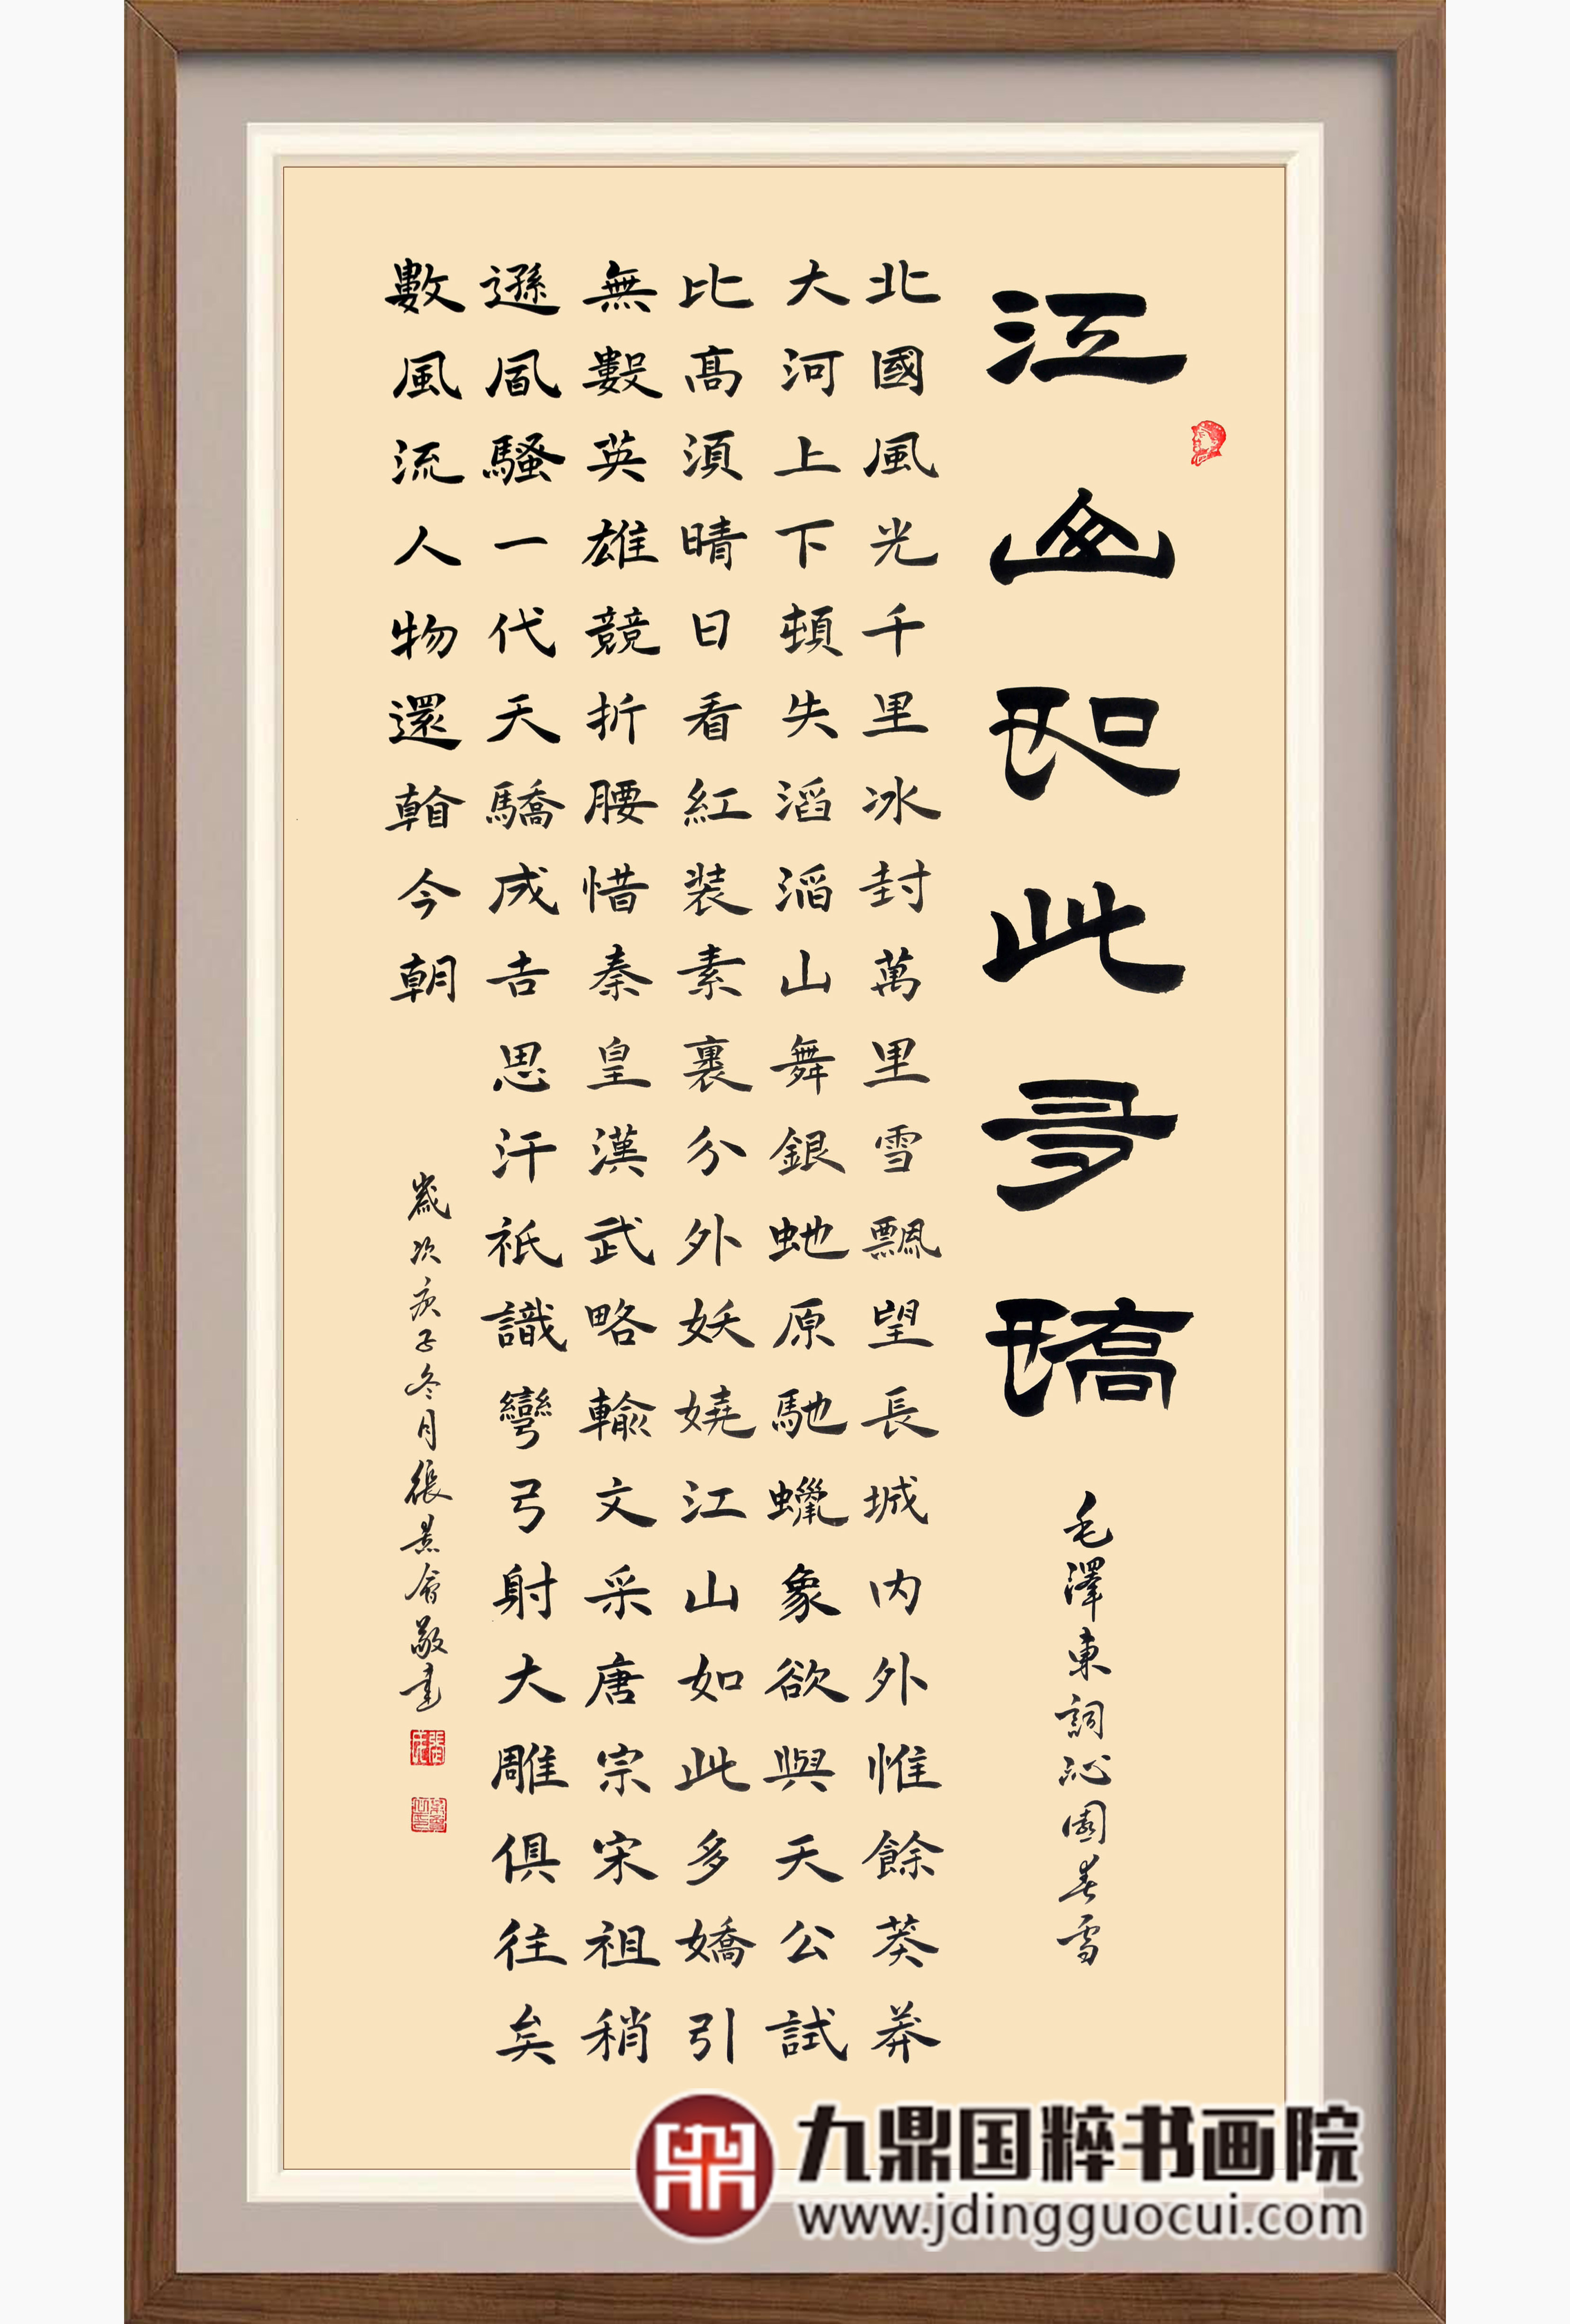 江山如此多嬌
毛澤東詞沁園春雪
北國風光千里冰封萬里雪飄望長城内外惟餘莽莽
大河上下頓失滔滔山舞銀虵原馳蠟象欲與天公試
比高須晴日看紅装素裹分外妖嬈江山如此多嬌引
無數英雄競折腰惜秦皇漢武略輸文采唐宗宋祖稍
遜風騷一代天驕成吉思汗祇識彎弓射大雕俱往矣
數風流人物還看今朝
歲次庚子冬月張景會敬書
九鼎国粹书画院
www.jdingguocui.com